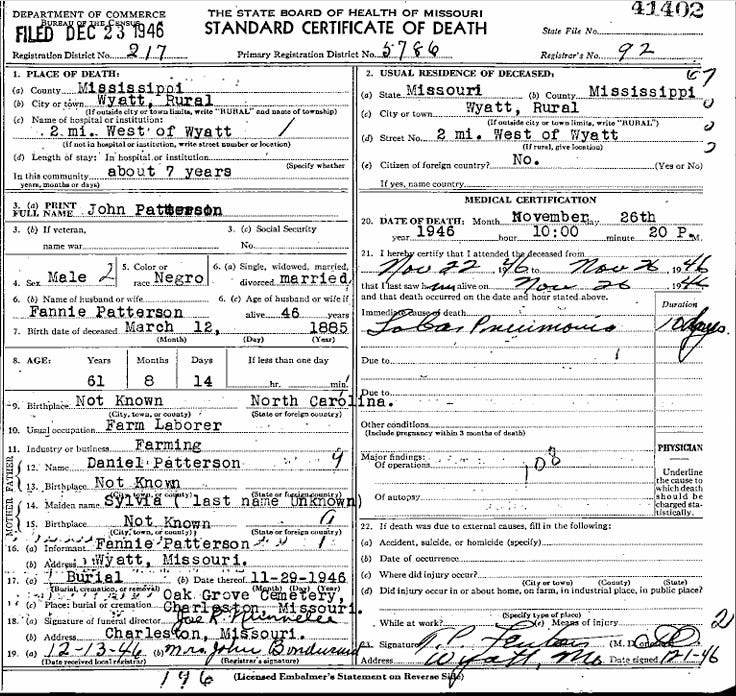 DEPARTMENT OF COMMERCE
Bureau of the Census
FILED DEC 23 1946
Registration District No. 217
THE STATE BOARD OF HEALTH OF MISSOURI
STANDARD CERTIFICATE OF DEATH
Primary Registration District No. 5786
41402
State File No.
Registrar's No. 92
1. PLACE OF DEATH:
(a) County Mississippi
(b) City or town Wyatt, Rural
(If outside city or town limits, write "RURAL" and name of township)
(c) Name of hospital or institution:
2 mi. West of Wyatt
(If not in hospital or institution, write street number or location)
(d) Length of stay: In hospital or institution
(Specify whether
In this community about 7 years
years, months or days)
3. (a) PRINT FULL NAME John Patterson
3. (b) If veteran, name war
3. (c) Social Security No.
4. Sex Male 2
5. Color or race Negro
6. (a) Single, widowed, married, divorced married
6. (b) Name of husband or wife
Fannie Patterson
6. (c) Age of husband or wife if alive 46 years
7. Birth date of deceased March 12, 1885
(Month) (Day) (Year)
8. AGE: Years Months Days If less than one day
61 8 14 hr. min.
9. Birthplace Not Known North Carolina.
(City, town, or county) (State or foreign country)
10. Usual occupation Farm Laborer
11. Industry or business Farming
FATHER
12. Name Daniel Patterson 9
13. Birthplace Not Known
(City, town, or county) (State or foreign country)
MOTHER
14. Maiden name Sylvia ( last name Unknown)
15. Birthplace Not Known
(City, town, or county) (State or foreign country)
16. (a) Informant Fannie Patterson
(b) Address Wyatt, Missouri.
17. (a) Burial (b) Date thereof 11-29-1946
(Burial, cremation, or removal) (Month) (Day) (Year)
Oak Grove Cemetery,
(c) Place: burial or cremation Charleston, Missouri.
18. (a) Signature of funeral director
(b) Address Charleston, Missouri.
19. (a) 12-13-46 (b) Mrs John Bondurant
(Date received local registrar) (Registrar's signature)
2. USUAL RESIDENCE OF DECEASED:
(a) State Missouri (b) County Mississippi
(c) City or town Wyatt, Rural
(If outside city or town limits, write "RURAL")
(d) Street No. 2 mi. West of Wyatt
(If rural, give location)
(e) Citizen of foreign country? No. (Yes or No)
If yes, name country
MEDICAL CERTIFICATION
20. DATE OF DEATH: Month November day 26th
year 1946 hour 10:00 minute 20 P.M.
21. I hereby certify that I attended the deceased from
Nov 22 1946 to Nov 26 1946
that I last saw him alive on Nov 26 1946
and that death occurred on the date and hour stated above.
Duration
Immediate cause of death
Lobar Pneumonia 10 days
Due to
Due to
Other conditions
(Include pregnancy within 3 months of death)
Major findings:
Of operations
108
Of autopsy
PHYSICIAN
Underline the cause to which death should be charged statistically.
22. If death was due to external causes, fill in the following:
(a) Accident, suicide, or homicide (specify)
(b) Date of occurrence
(c) Where did injury occur?
(City or town) (County) (State)
(d) Did injury occur in or about home, on farm, in industrial place, in public place?
(Specify type of place)
While at work? (e) Means of injury 2
23. Signature (M. D.
Address Wyatt, Mo Date signed 12-1-46
196
(Licensed Embalmer's Statement on Reverse Side)